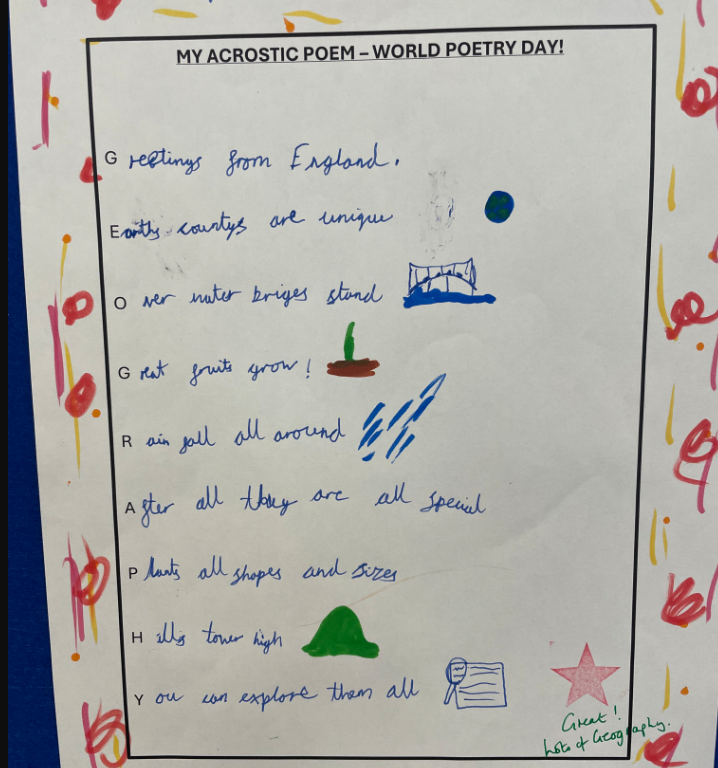 MY ACROSTIC POEM – WORLD POETRY DAY!
Greetings from England.
Earths countys are unique
Over water briges stand
Great fruits grow!
Rain fall all around
After all they are all special
Plants all shapes and sizes
Hills tower high
You can explore them all
Great!
Lots of Geography.